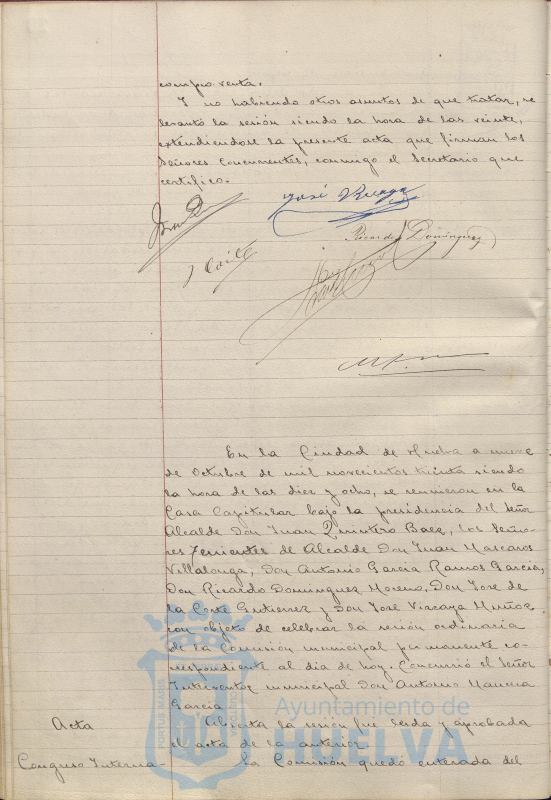 compro venta.
Y no habiendo otros asuntos de que tratar, se
levantó la sesión siendo la hora de las veinte,
extendiendose la presente acta que firman los
Señores Concurrentes, conmigo el Secretario que
certifico.
José Vizcaya
Ricardo Dominguez
J Corte
En la Ciudad de Huelva a nueve
de Octubre de mil novecientos treinta siendo
la hora de las diez y ocho, se reunieron en la
Casa Capitular bajo la presidencia del Señor
Alcalde Don Juan Quintero Baez, los Seño-
res Tenientes de Alcalde Don Juan Mascaros
Villalonga, Don Antonio Garcia Ramos Garcia,
Don Ricardo Dominguez Moreno, Don Jose de
la Corte Gutierrez y Don Jose Vizcaya Muñoz
con objeto de celebrar la sesión ordinaria
de la Comisión municipal permanente co-
rrespondiente al dia de hoy. Concurrió el Señor
Interventor municipal Don Antonio
Garcia
Acta
Abierta la sesión fué leida y aprobada
el acta de la anterior.
Congreso Interna-
La Comisión quedó enterada del
PORTUS MARIS
Ayuntamiento de
HUELVA